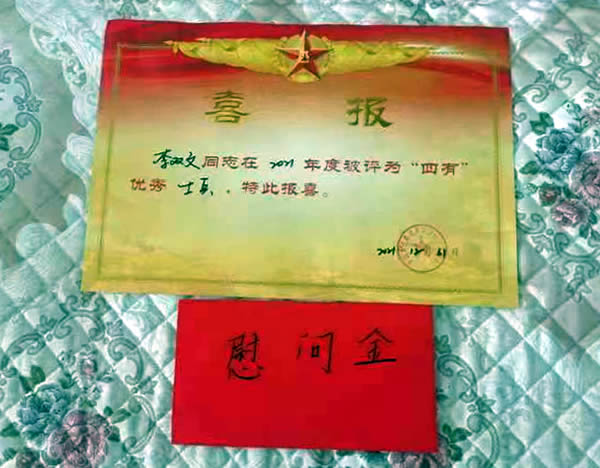 喜报
李双文同志在2021年度被评为“四有”
优秀士兵,特此报喜。
2021年12月31日
慰问金